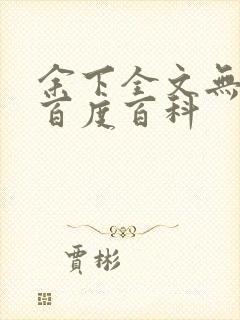 余下全文無
百度百科
賈彬